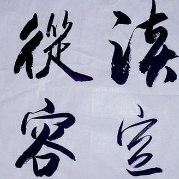 淡定
從容